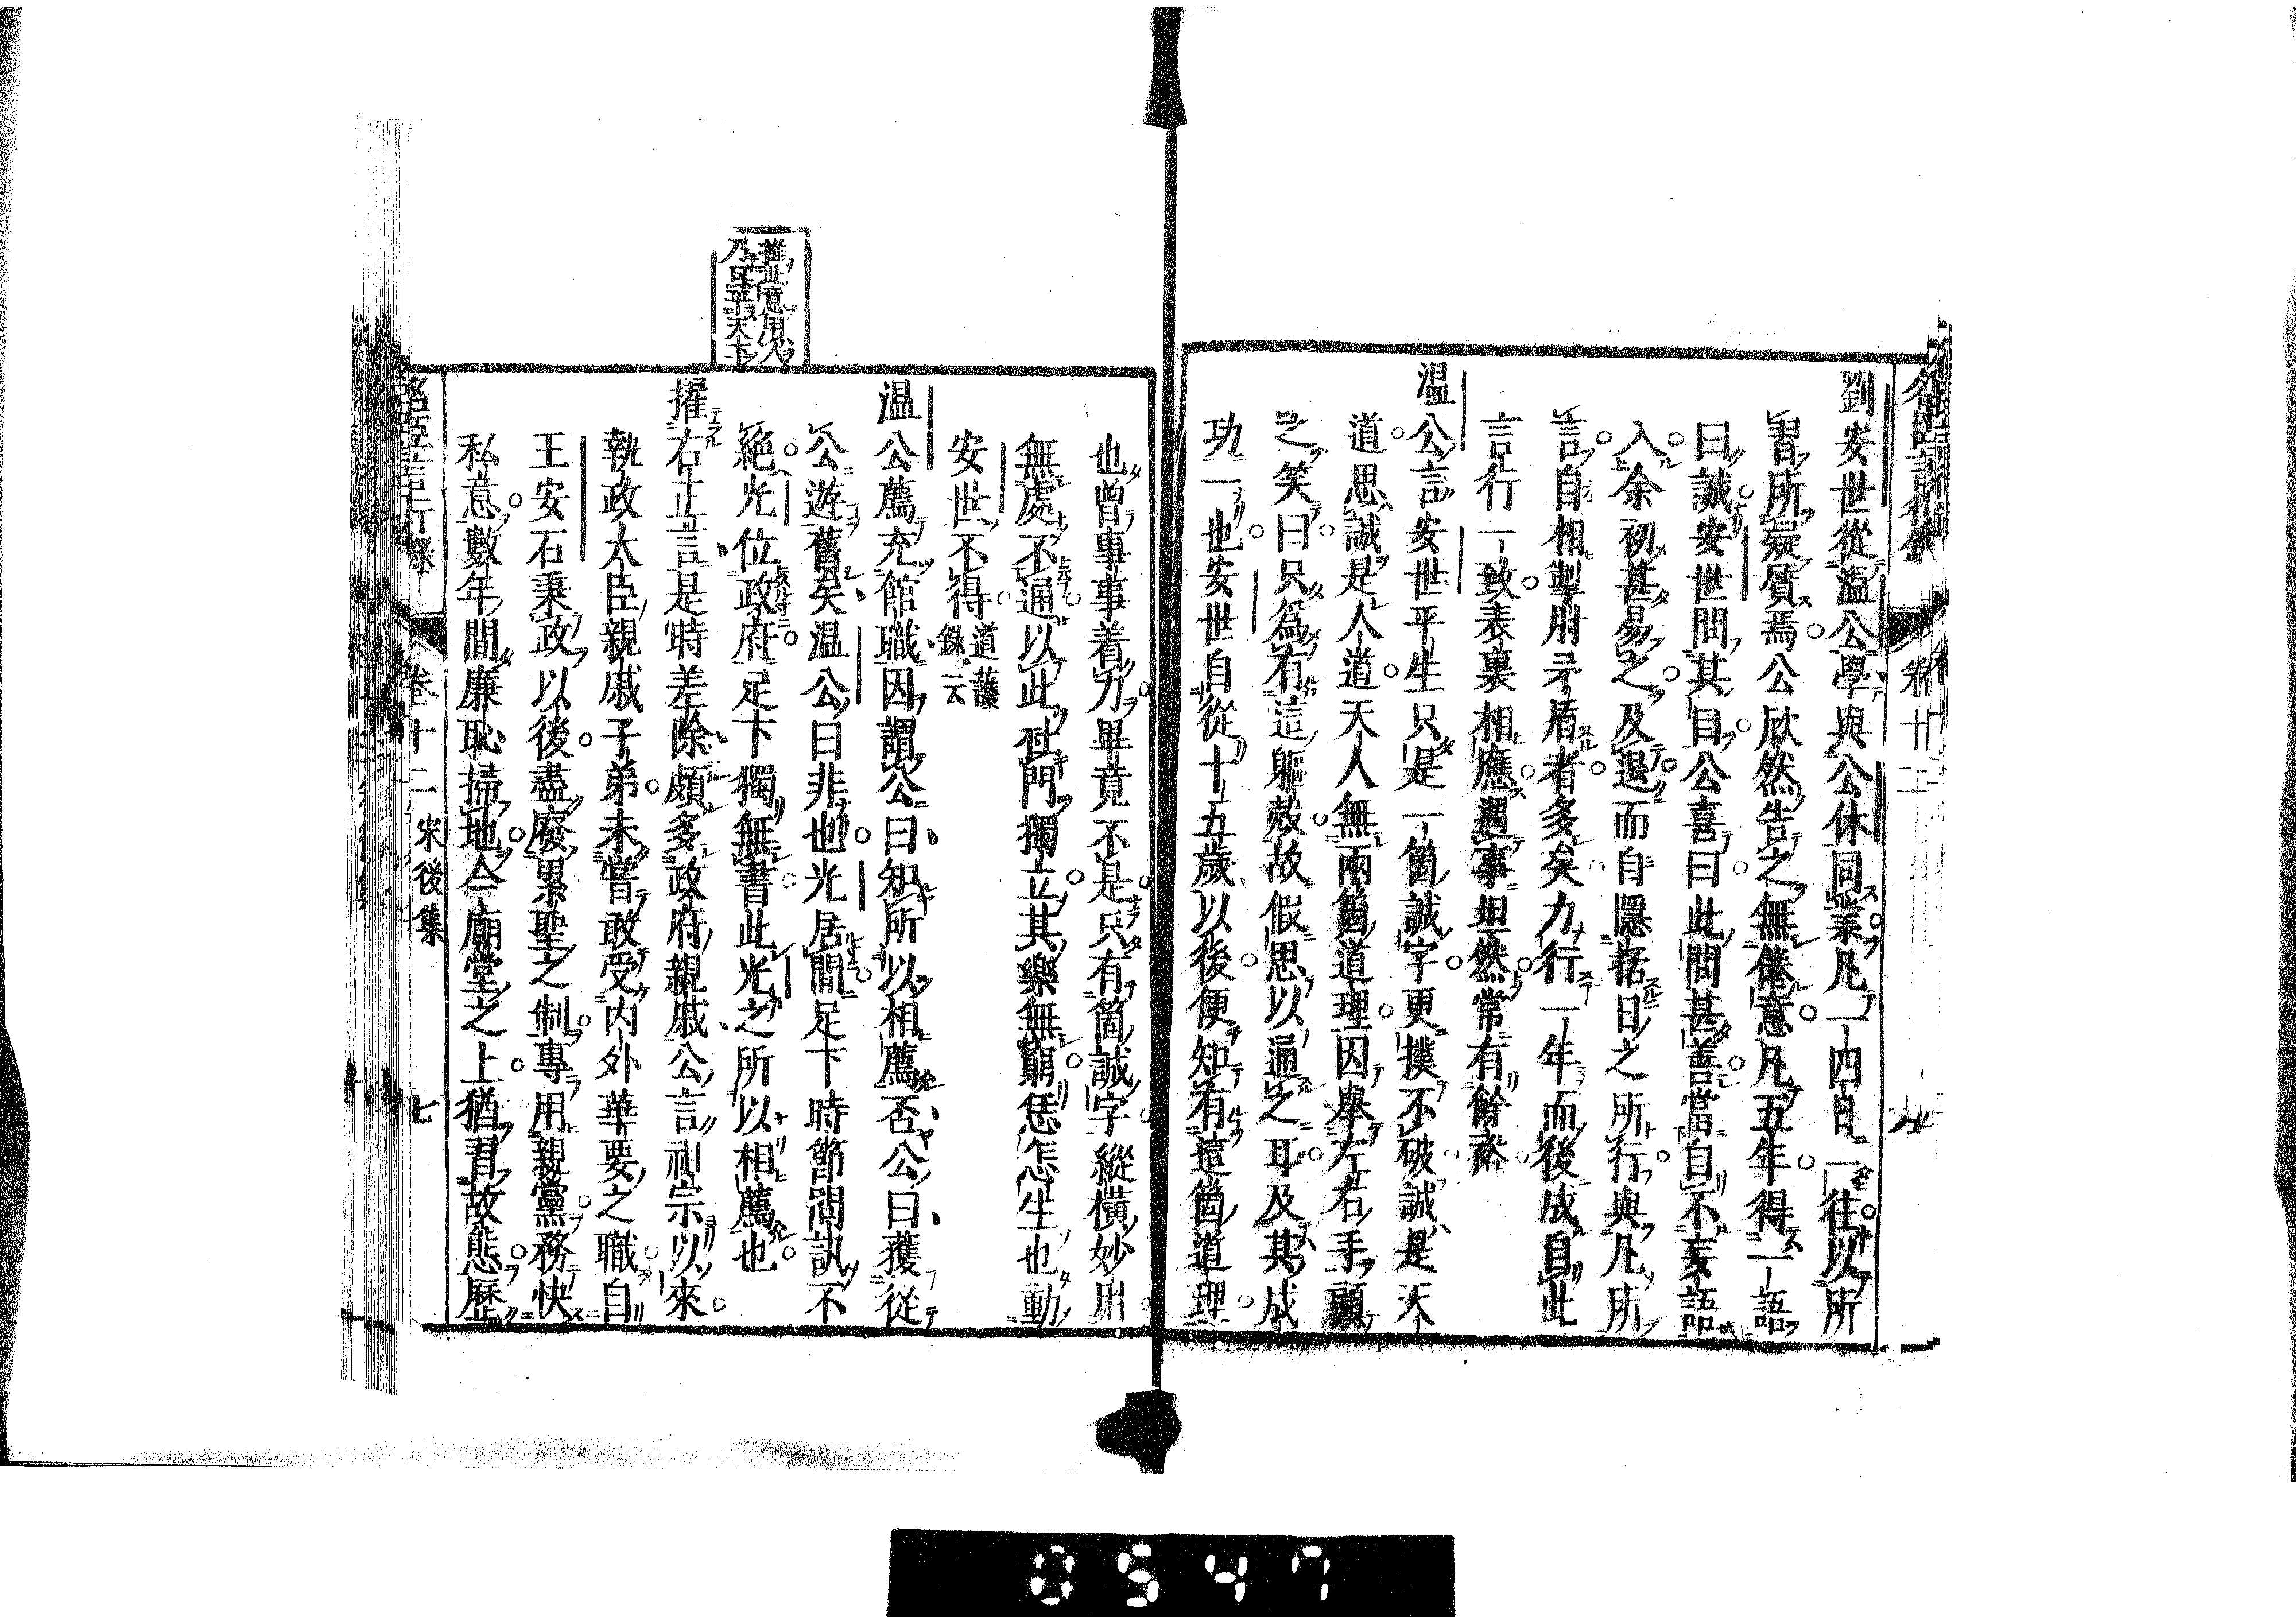 劉安世從溫公學與公休同業凡一四日一往以所
習所疑質焉公欣然告之無倦意凡五年得一語
曰誠安世問其目公喜曰此問甚善當自不妄語
入余初甚易之及退而自隱括日之所行與凡所
言自相掣肘矛盾者多矣力行一年而後成自此
言行一致表裏相應遇事坦然常有餘裕
溫公言安世平生只是一箇誠字更撲不破誠是天
道思誠是人道天人無兩箇道理因舉左右手顧
之笑曰只為有這軀殼故假思以通之耳及其成
功一也安世自從十五歲以後便知有這箇道理
也曾事事着力畢竟不是只有箇誠字縱橫妙用
無處不通以此杜門獨立其樂無窮恁怎生也動
安世不得道護錄云
溫公薦充館職因謂公曰知所以相薦否公曰獲從
公遊舊矣溫公曰非也光居閒足下時節問訊不
絕光位政府足下獨無書此光之所以相薦也
擢右正言是時差除頗多政府親戚公言祖宗以來
執政大臣親戚子弟未嘗敢受內外華要之職自
王安石秉政以後盡廢累聖之制專用親黨務快
私意數年間廉恥掃地今廟堂之上猶習故態歷
推此意用人
乃旦平天下
名臣言行錄 卷十二 宋後集 七